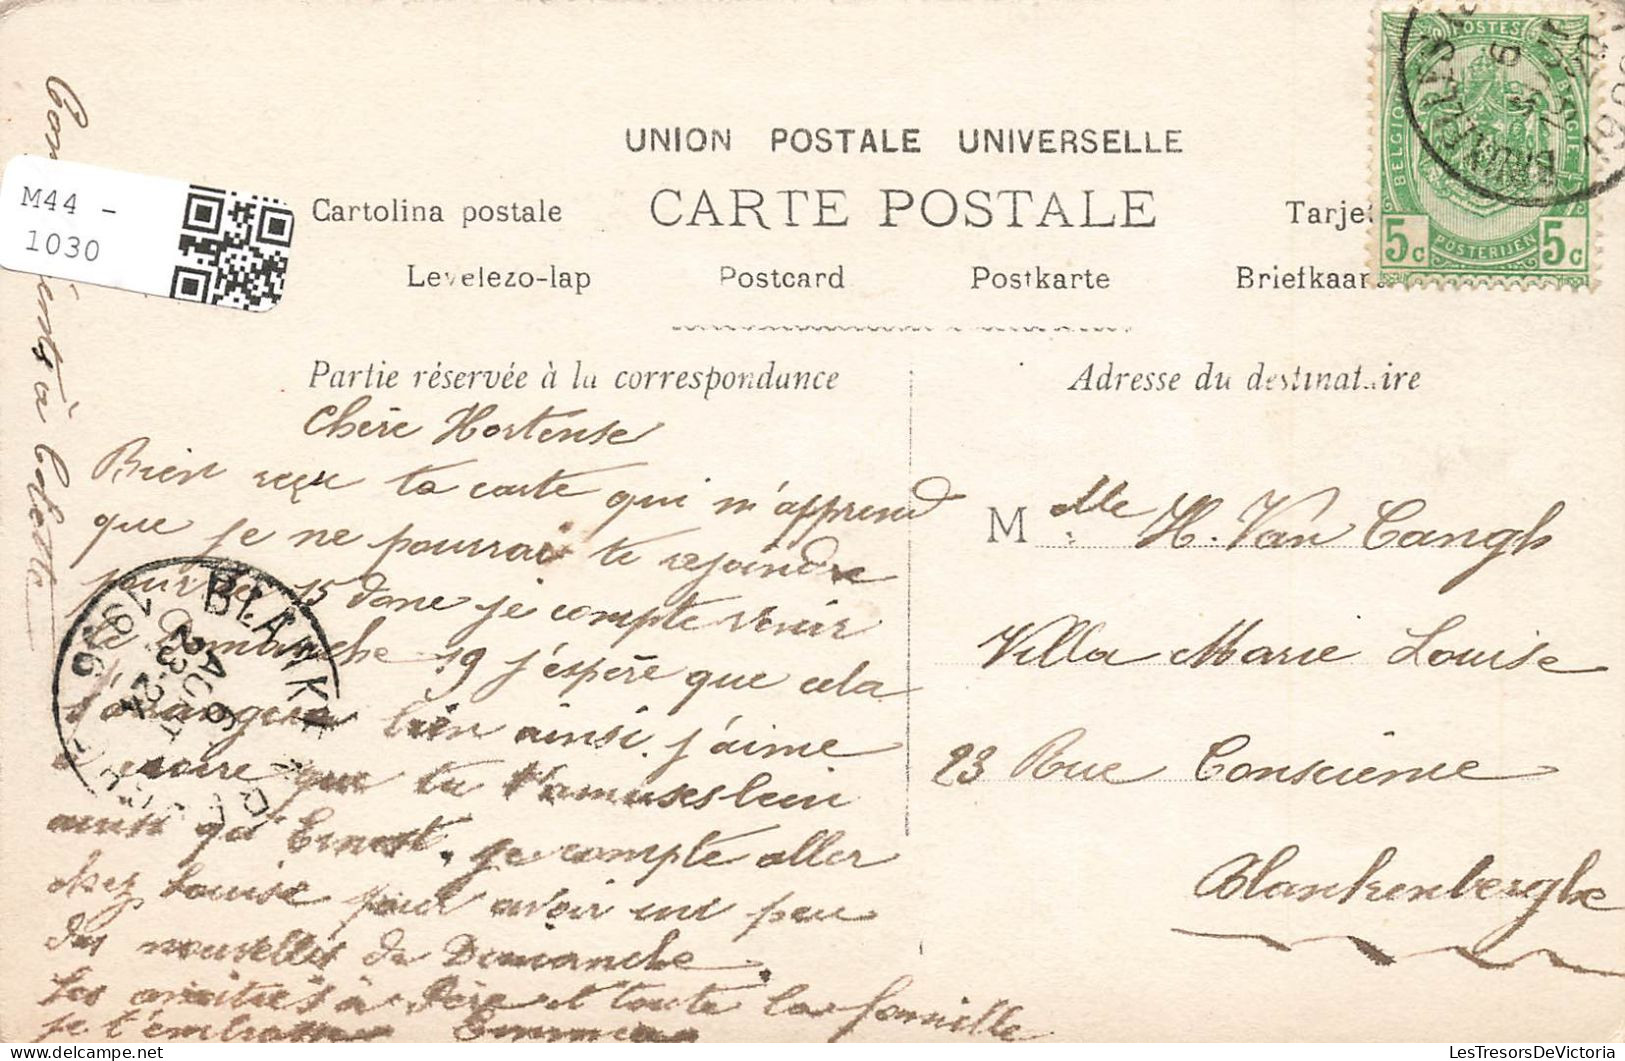 UNION POSTALE UNIVERSELLE
CARTE POSTALE
Cartolina postale
Tarje
Levelezo-lap Postcard Postkarte Briefkaar
M44 -
1030
POSTES
BELGIQUE BELGIË
5c POSTERIJEN 5c
Partie réservée à la correspondance
Adresse du destinataire
Chère Hortense
Bien reçu ta carte qui m'apprend
que je ne pourrai te rejoindre
pour le 15 donc je compte venir
le Dimanche 19 j'espère que cela
s'arrangera bien ainsi j'aime
à croire que tu t'amuses bien
ainsi qu' Ernest. je compte aller
chez Louise pour avoir un peu
des nouvelles de Dimanche.
Les amitiés à Père et toute la famille
je t'embrasse Emma
à Céleste
Melle H. Van Cangh
Villa Marie Louise
23 Rue Conscience
Blankenberghe
BLANKENBERGHE
1906
AOUT 6
LesTresorsDeVictoria